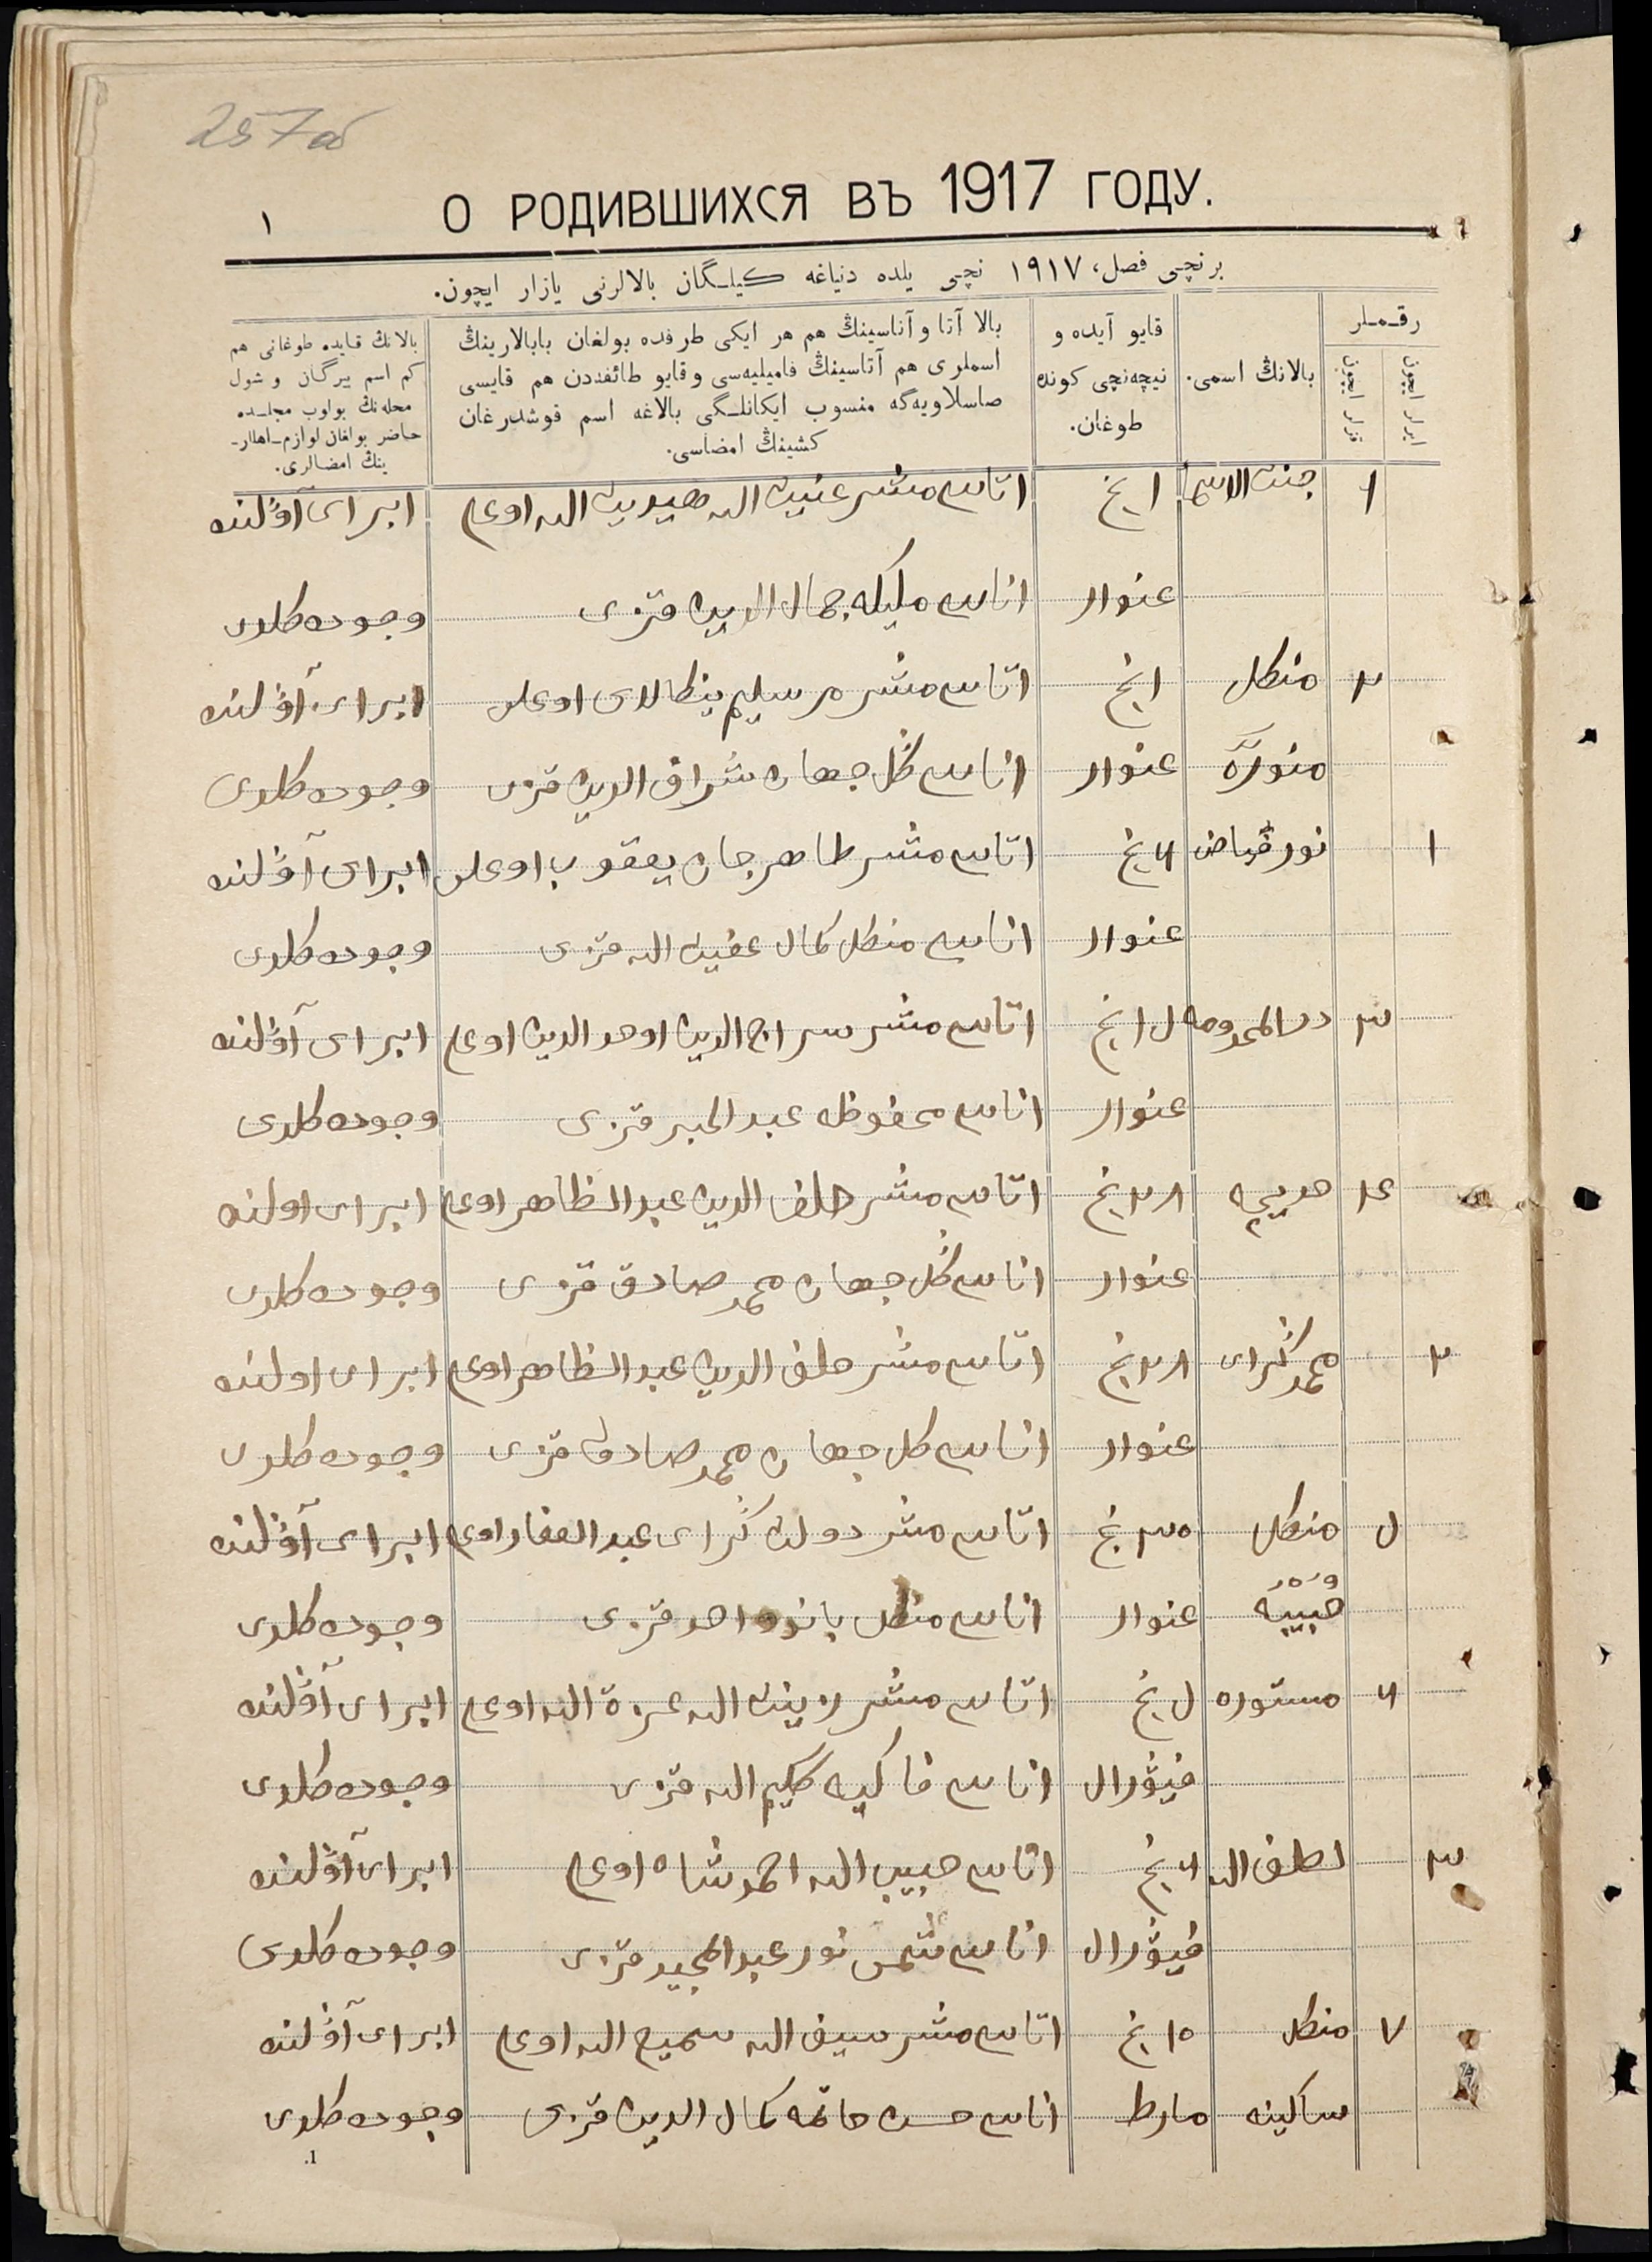 257об
О РОДИВШИХСЯ ВЪ 1917 ГОДУ.
١
برنچی فصل، ١٩١٧ نچی یلده دنیاغه کیلگان بالالرنی یازار ایچون.
رقملر
ایرلر ایچون
قزلر ایچون
بالانڭ اسمی.
قایو آیده و
نیچه‌نچی کونده
طوغان.
بالا آتا و آناسینڭ هم هر ایکی طرفده بولغان بابالارینڭ
اسملری هم آتاسینڭ فامیلیه‌سی و قایو طائفه‌دن هم قایسی
صاسلاویه‌گه منسوب ایکانلگی بالاغه اسم قوشدرغان
کشینڭ امضاسی.
بالانڭ قایده طوغانی هم
کم اسم بیرگان و شول
محله‌نڭ بولوب مجلسده
حاضر بولغان لوازم اهللر-
ینڭ امضالری.
١ جنت الاسما ١ نچ اتاسی مشر عنیت الله هیدیت الله اوغلی ابرای آۋلنده
عنوار اناسی ملیکه جمال الدین قزی وجوده کلدی
٢ منکل ١ نچ اتاسی مشر مرسلیم اوغلی ابرای آۋلنده
منوره عنوار اناسی گل جهان شراف الدین قزی وجوده کلدی
١ نورفیاض ٦ نچ اتاسی مشر طاهرجان یعقوب اوغلی ابرای آۋلنده
عنوار اناسی منکل کمال عفیت الله قزی وجوده کلدی
٣ ١٥ نچ اتاسی مشر سراج الدین اوحد الدین اوغلی ابرای آۋلنده
عنوار اناسی محفوظه عبد الخبر قزی وجوده کلدی
٤ خدیجه ٢٨ نچ اتاسی مشر خلف الدین عبد الظاهر اوغلی ابرای اولنده
عنوار اناسی گل جهان محمد صادق قزی وجوده کلدی
٢ محمد گرای ٢٨ نچ اتاسی مشر خلف الدین عبد الظاهر اوغلی ابرای اولنده
عنوار اناسی کل جهان محمد صادق قزی وجوده کلدی
٥ منکل ٣٠ نچ اتاسی مشر دولت گرای عبد الغفار اوغلی ابرای آۋلنده
حبیبه عنوار اناسی منکل بانو احمد قزی وجوده کلدی
٦ مستوره ٥ نچ اتاسی مشر زینت الله عزة الله اوغلی ابرای آۋلنده
فیۋرال اناسی فاکیه حکیم الله قزی وجوده کلدی
٣ لطف الله ٦ نچ اتاسی حبیب الله احمد شاه اوغلی ابرای آۋلنده
فیۋرال اناسی شمس نور عبد المجید قزی وجوده کلدی
٧ منکل ١٥ نچ اتاسی مشر سیف الله سمیع الله اوغلی ابرای آۋلنده
ساکینه مارط اناسی حسن خاتمه کمال الدین قزی وجوده کلدی
1.